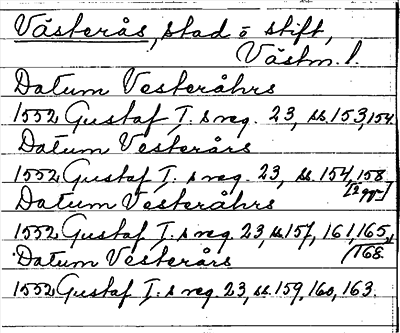 Västerås, stad o stift,
Västm. l.
Datum Vesteråhrs
1552 Gustaf I:s reg. 23, ss. 153, 154
Datum Vesterårs
1552 Gustaf I:s reg. 23, ss. 154, 158
[2 ggr]
Datum Vesteråhrs
1552 Gustaf I:s reg. 23, ss. 157, 161, 165,
168.
Datum Vesterårs
1552 Gustaf I:s reg. 23, ss. 159, 160, 163.